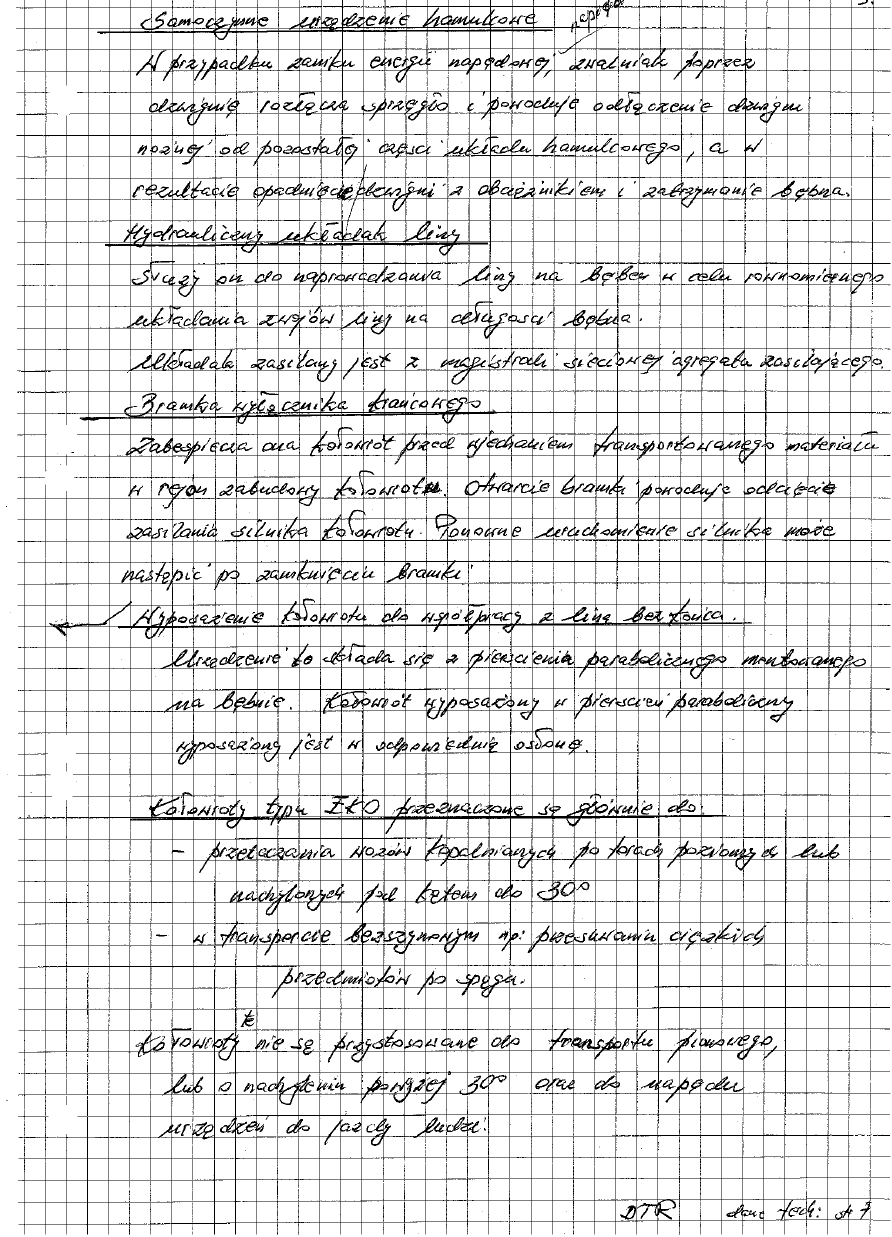 Samoczynne urządzenie hamulcowe
W przypadku zaniku energii napędowej, zwalniak poprzez
dzwignię rozłącza sprzęgło i powoduje odłączenie dzwigni
nożnej od pozostałej części układu hamulcowego, a w
rezultacie opadnięcie dzwigni z obciążnikiem i zatrzymanie bębna.
Hydrauliczny układak liny
Służy on do naprowadzania liny na bęben w celu równomiernego
układania zwojów liny na długości bębna.
Układak zasilany jest z magistrali sieciowej agregatu zasilającego.
Bramka wyłącznika krańcowego
Zabezpiecza ona kołowrót przed wjechaniem transportowanego materiału
w rejon zabudowy kołowrotu. Otwarcie bramki powoduje odcięcie
zasilania silnika kołowrotu. Ponowne uruchomienie silnika może
nastąpić po zamknięciu bramki.
Wyposażenie kołowrotu do współpracy z liną bez końca.
Urządzenie to składa się z pierścienia parabolicznego montowanego
na bębnie. Kołowrót wyposażony w pierścień paraboliczny
wyposażony jest w odpowiednią osłonę.
Kołowroty typu EKO przeznaczone są głównie do:
- przetaczania wozów kopalnianych po torach poziomych lub
nachylonych pod kątem do 30°
- w transporcie bezszynowym np: przesuwaniu ciężkich
przedmiotów po spągu.
Kołowroty te nie są przystosowane do transportu pionowego,
lub o nachyleniu powyżej 30° oraz do napędu
urządzeń do jazdy ludzi.
DTR dane tech: str 7